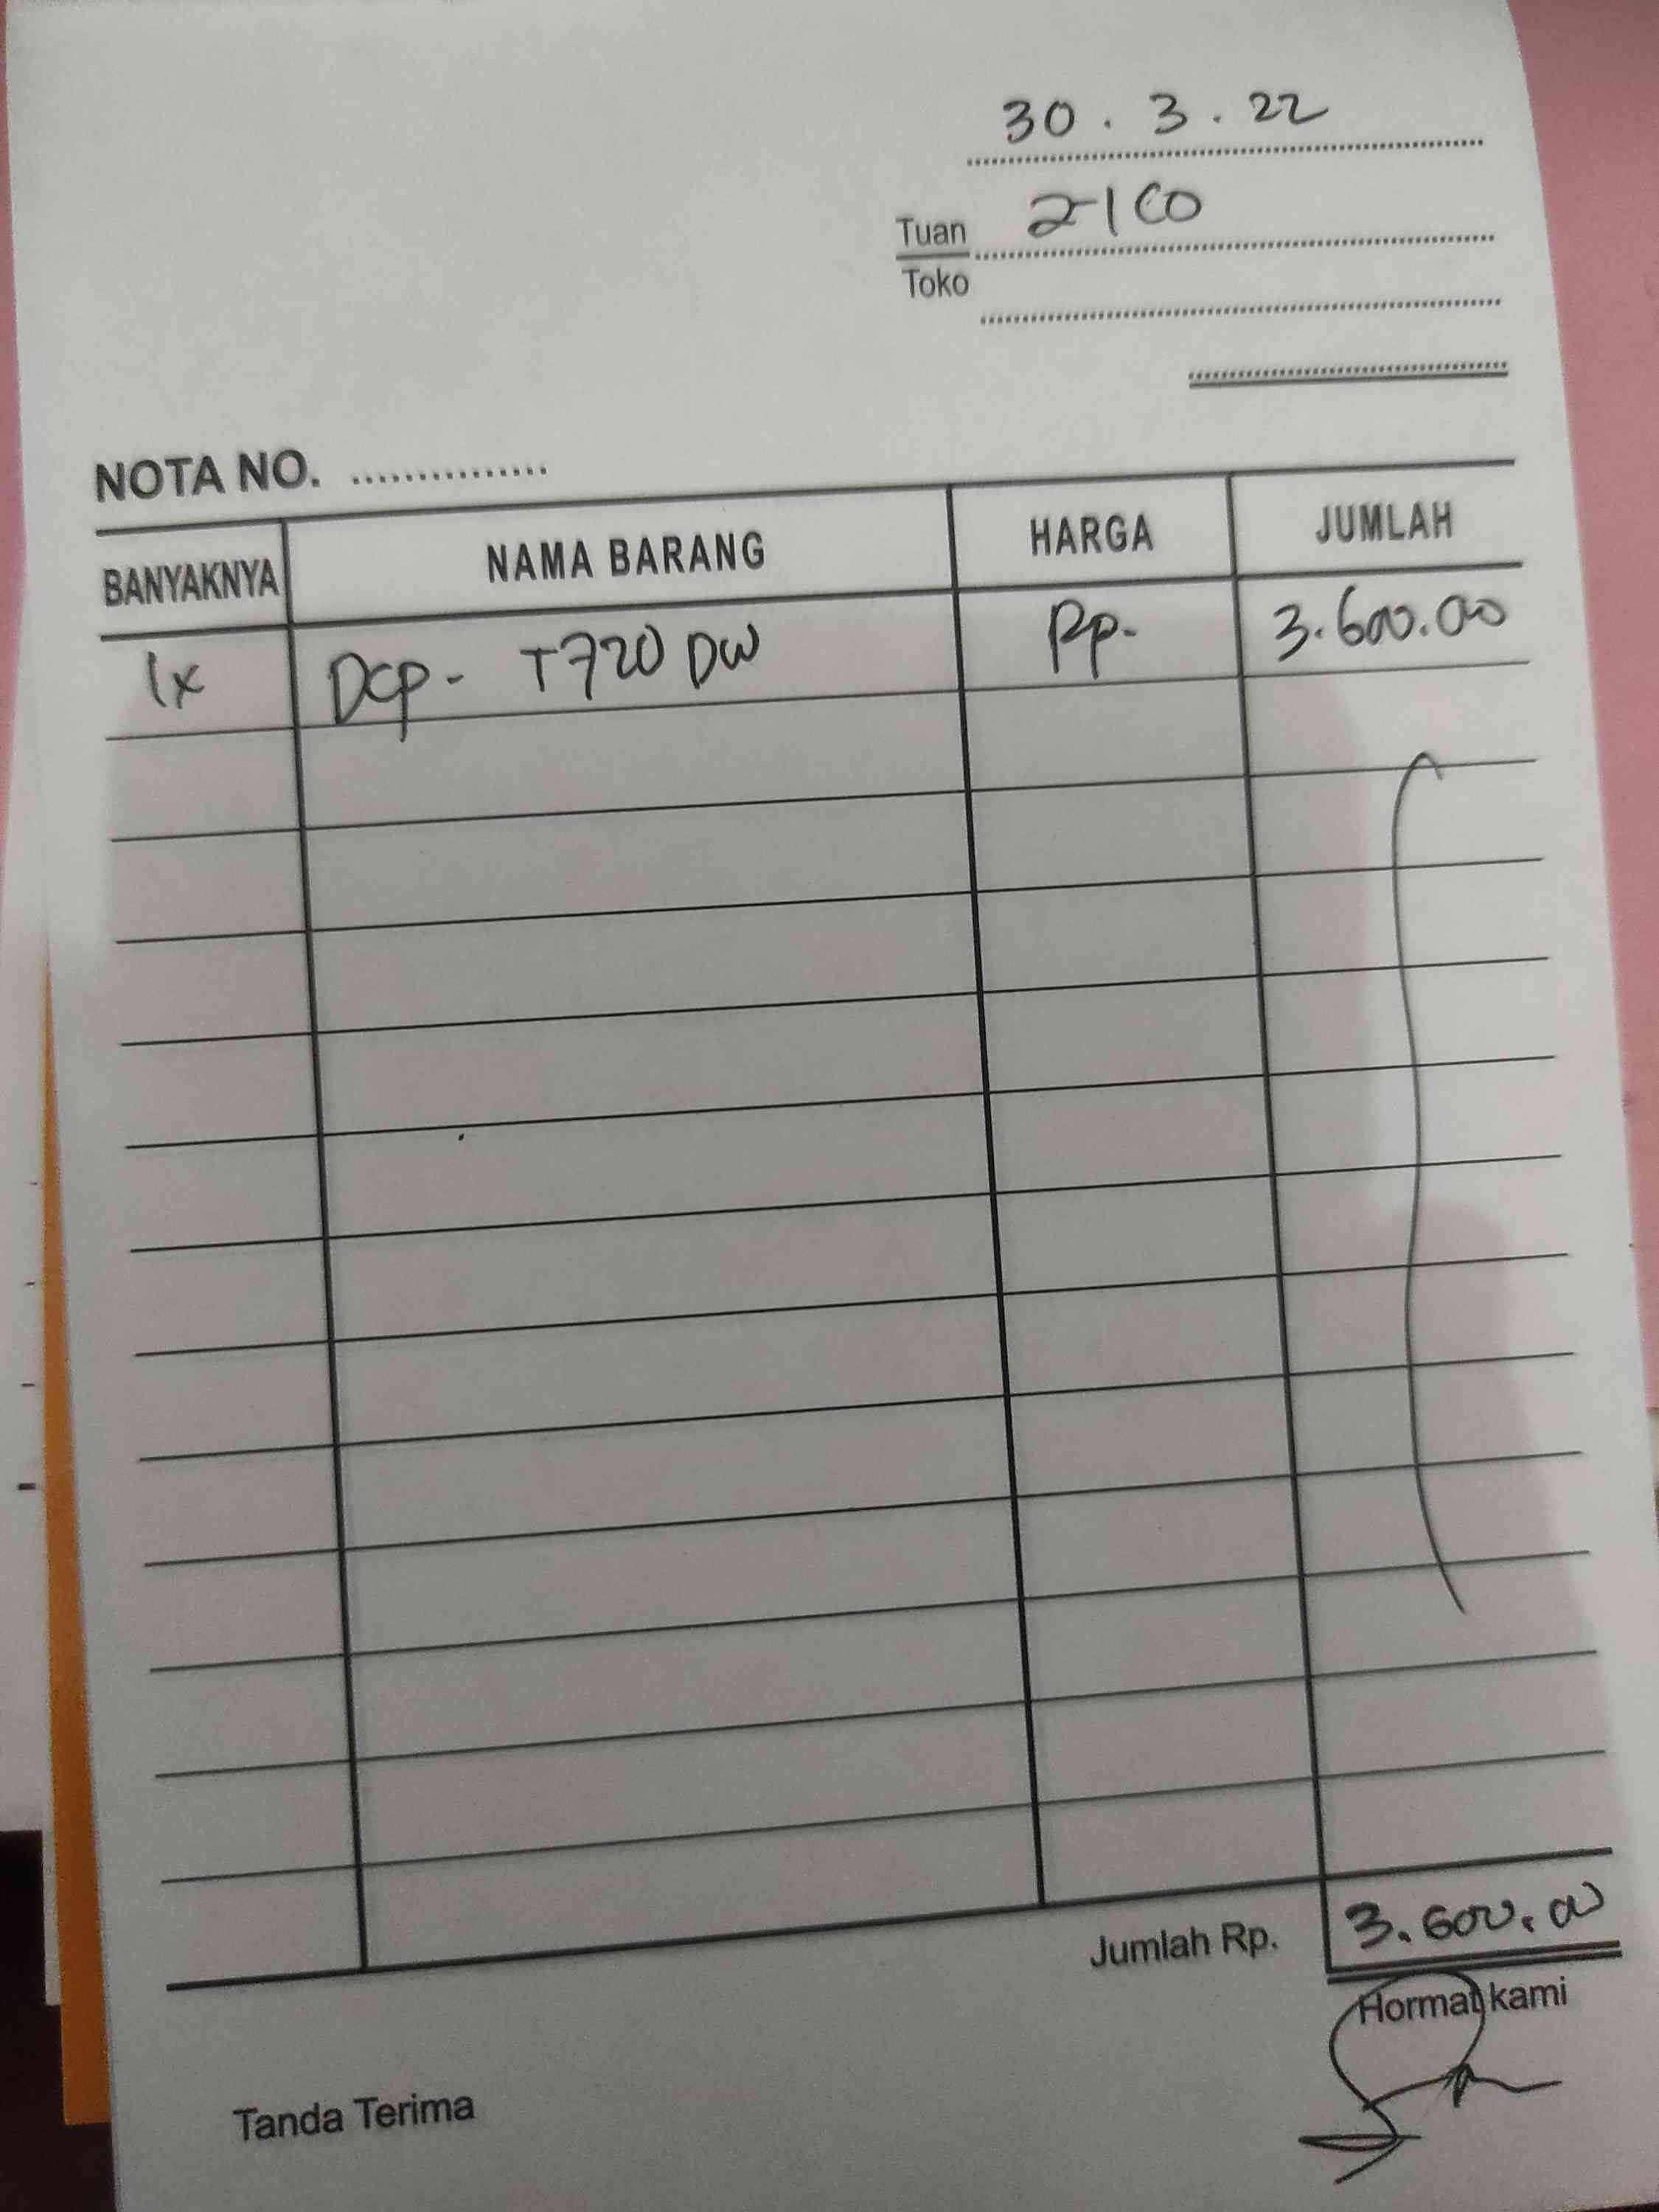 30 . 3 . 22
Tuan 21 CO
Toko
NOTA NO. ...............
BANYAKNYA NAMA BARANG HARGA JUMLAH
1x DCP - T720 DW Rp. 3.600.00
Jumlah Rp. 3.600.00
Hormat kami
Tanda Terima